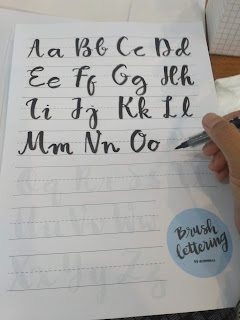 Aa Bb Cc Dd
Ee Ff Gg Hh
Ii Jj Kk Ll
Mm Nn Oo
Xx Yy Zz
Brush
lettering